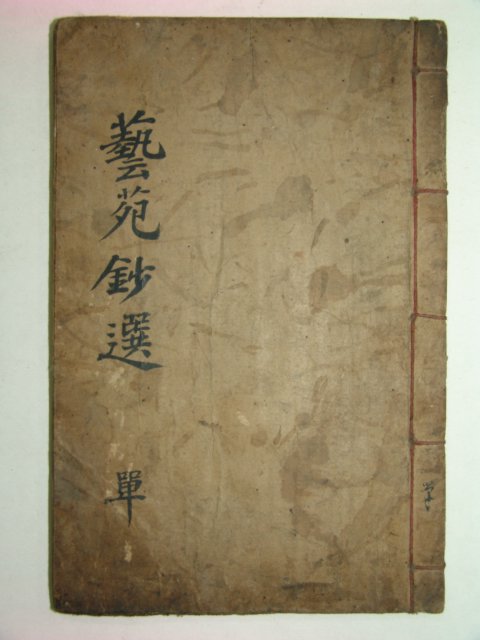 藝苑鈔選
單